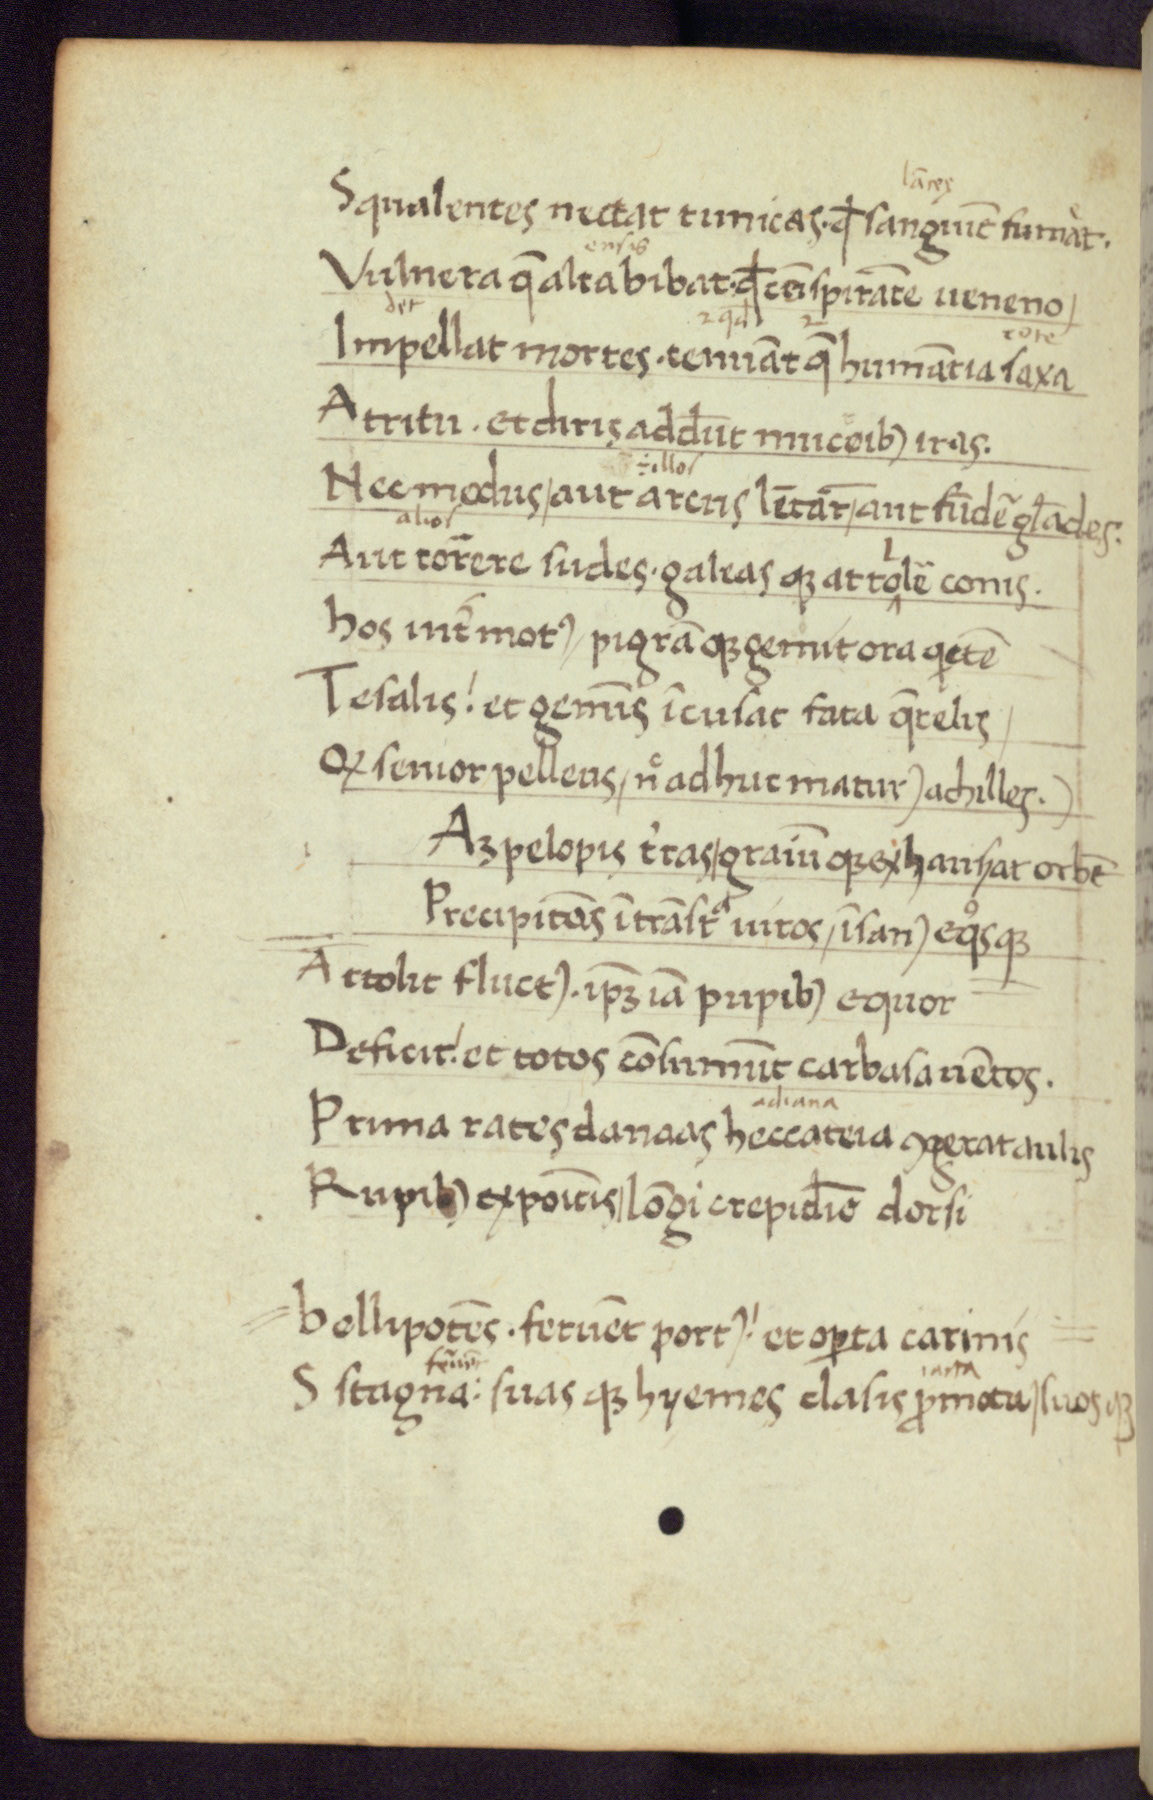 lāces
Squalentes nectat tunicas. qͩ sanguīe fumāt.
ensis
Vulnera q̄ alta bibat. qͩ cū spirāte ueneno
det
Impellat mortes. tenuāt q̄ humātia saxa
rore
Atritu. et diris addūt mucōib) iras.
tillos
Nec modus / aut arcus lētār̄ / aut fūdē glādes:
alios
Aut torrere sudes. galeas qꝫ attolē conis.
hos int̄ mot) / pigrā qꝫ gemit ora q̇etē
Tesalis! et gemīs īcusat fata q̄relis
Qͩ senior pelleus / nͦ adhuc matur) achilles.
Aꝫ pelopis t'ras / graiū qꝫ exhauserat orbē
Precipitās ītrāstͣ uiros / īsan) eqͦsqꝫ
Attolit fluct). ip̄ꝫ iā pupib) equor
Deficit! et totos cōsumūt carbasa uētos.
adiana
Prima rates danaas heccateia ꝯgerat aulis
Rupib) expoītis / lōgi crepidīe dorsi
bellipotēs. feruēt port)! et oꝑta carinis
S stagna: suas qꝫ hyemes clasis ꝓmota / suos qꝫ